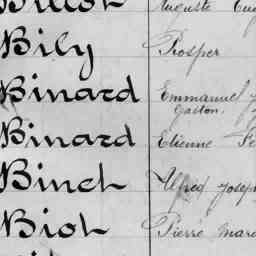 Auguste
Bily Prosper
Binard Emmanuel
Gaston.
Binard Etienne
Binet Alfred Joseph
Biot Pierre Marc